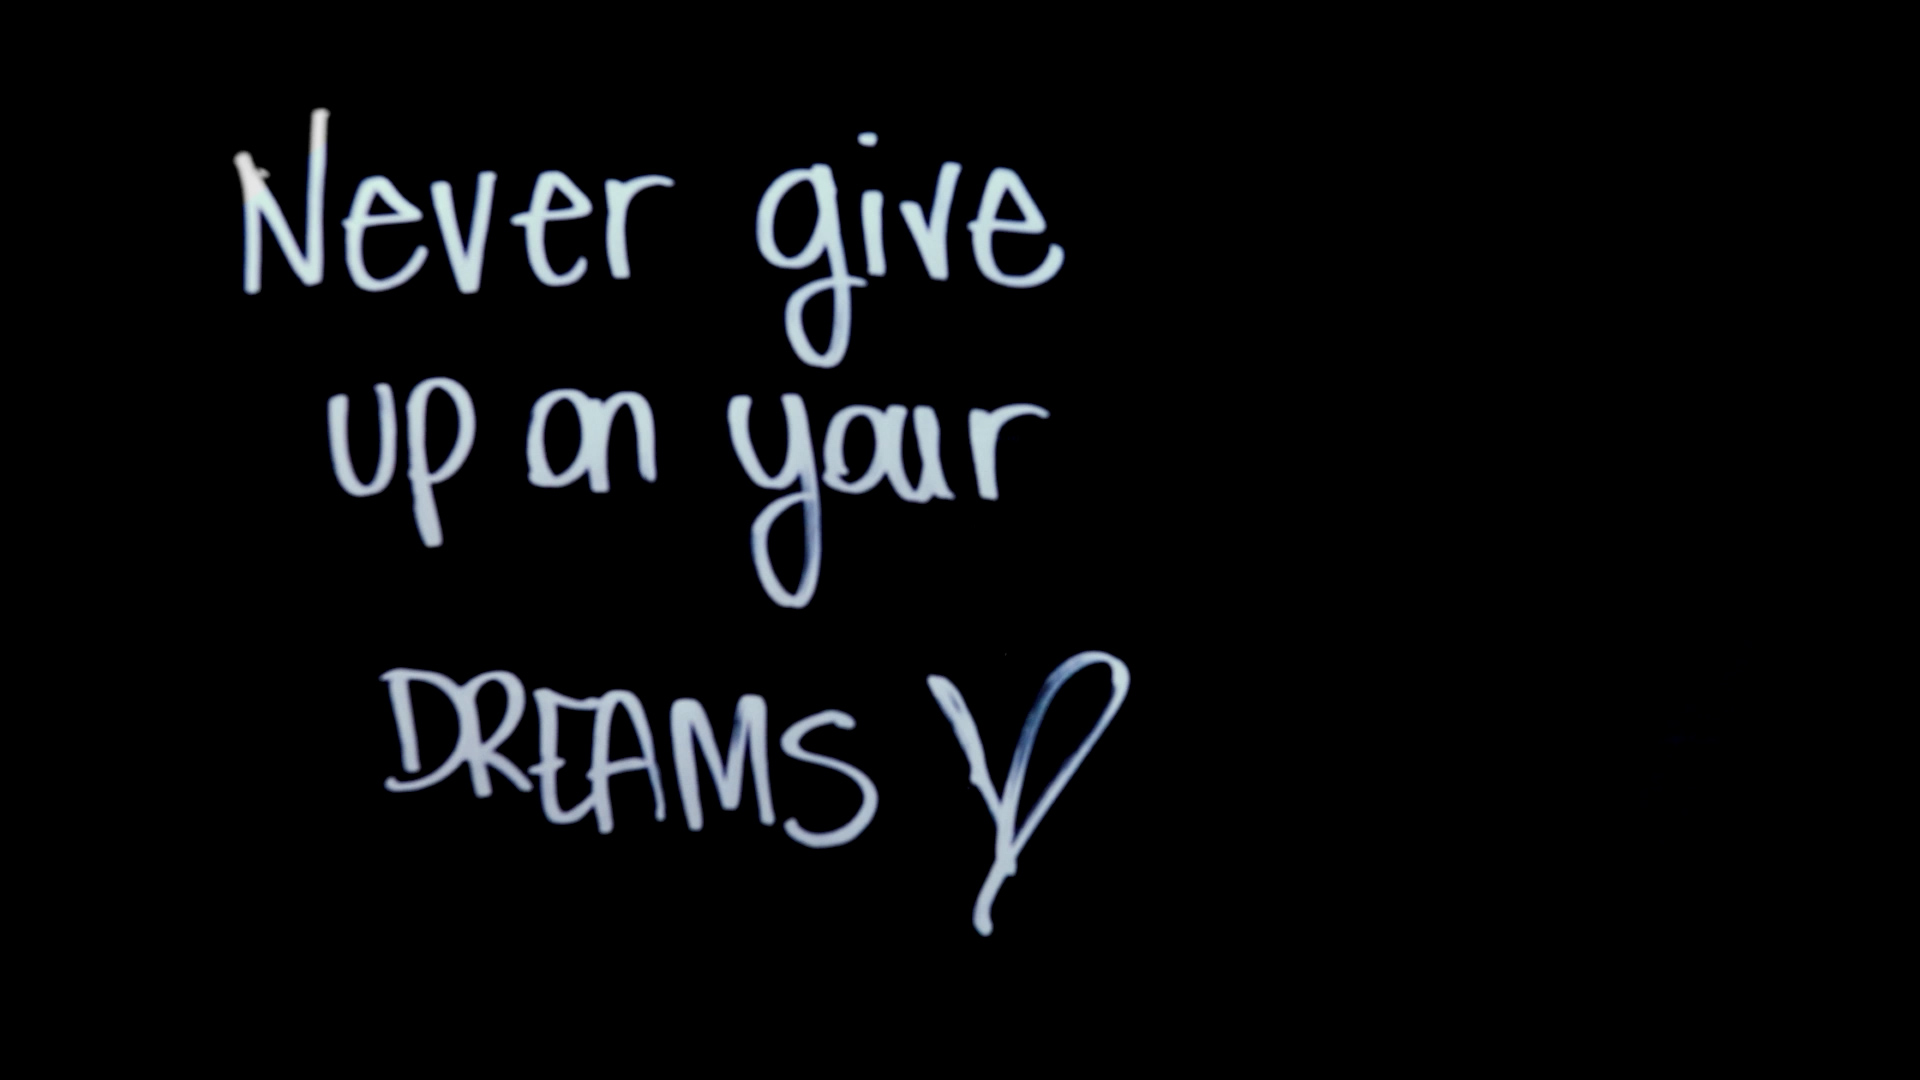 Never give
up on your
DREAMS ♡